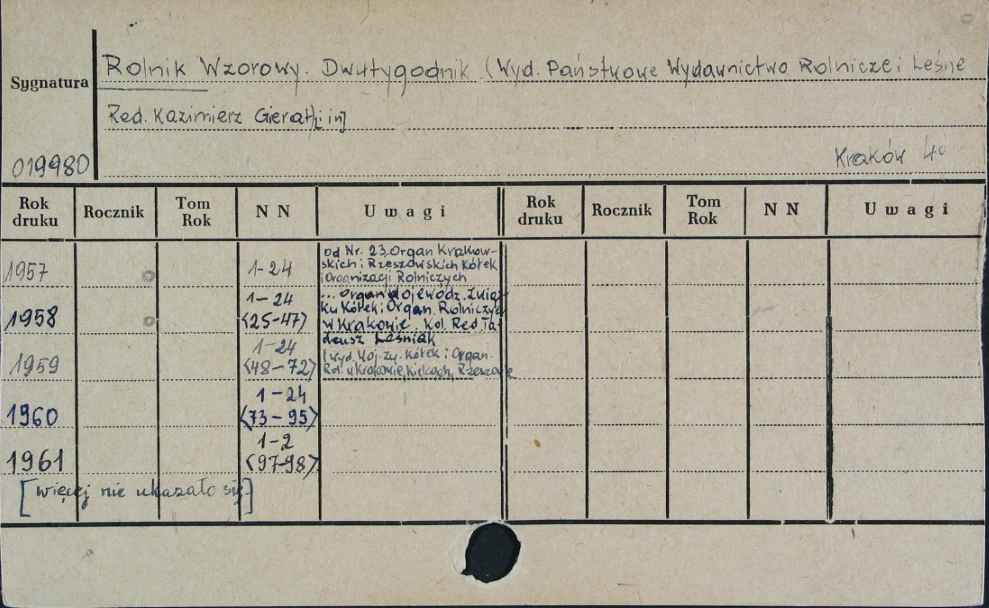 Rolnik Wzorowy. Dwutygodnik (Wyd. Państwowe Wydawnictwo Rolnicze i Leśne
Sygnatura
Red. Kazimierz Gierat [i in]
019980 Kraków 4°
Rok druku Rocznik Tom Rok N N Uwagi Rok druku Rocznik Tom Rok N N Uwagi
1957 1-24 od Nr. 23 Organ Krakow-
skich i Rzeszowskich Kółek
i Organizacji Rolniczych
1958 1-24 ... Organ Wojewódz. Związ-
<25-47> ku Kółek i Organ. Rolniczych
w Krakowie. Kol. Red. Ta-
deusz Leśniak
1959 1-24 (wyd. Woj. Zw. Kółek i Organ.
<48-72> Rol. w Krakowie, Kielcach, Rzeszowie
1960 1-24
<73-95>
1961 1-2
<97-98>
[więcej nie ukazało się]